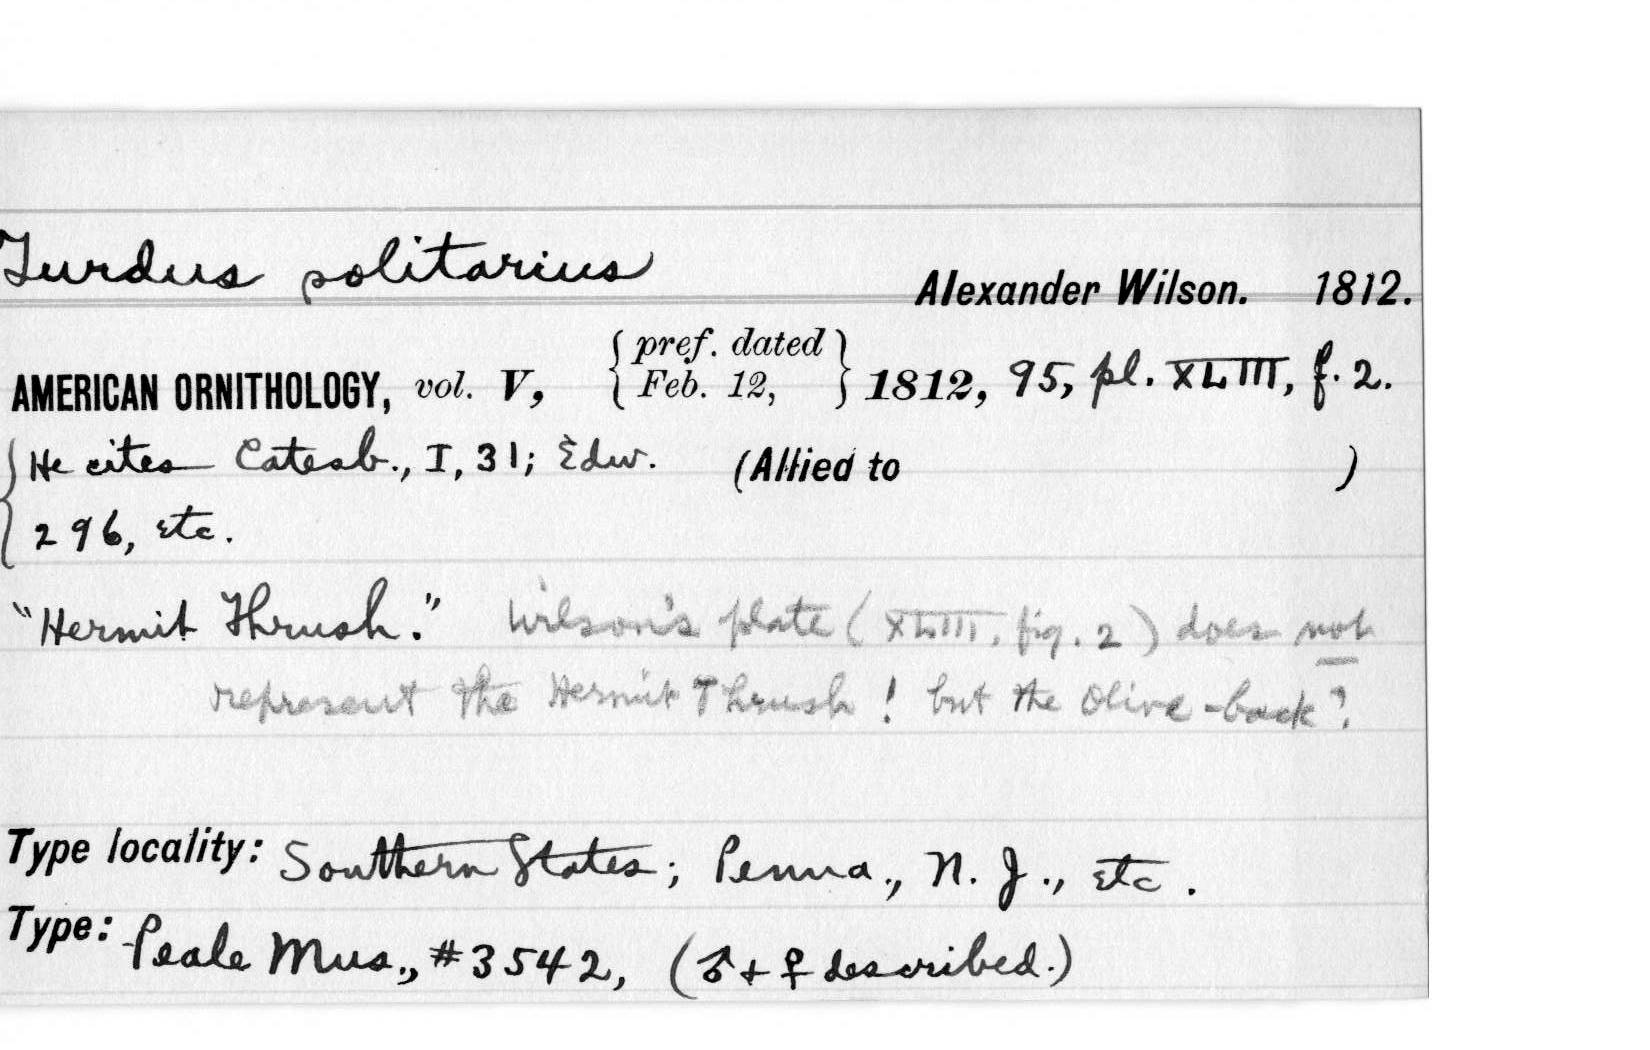 Turdus solitarius
Alexander Wilson. 1812.
AMERICAN ORNITHOLOGY, vol. V, { pref. dated Feb. 12, } 1812, 95, pl. XLIII, f. 2.
{ He cites Catesb., I, 31; Edw. (Allied to )
296, etc.
"Hermit Thrush." Wilson's plate (XLIII, fig. 2) does not
represent the Hermit Thrush! but the Olive-back?
Type locality: Southern States; Penna., N. J., etc.
Type: Peale Mus., #3542, (♂ + ♀ described.)